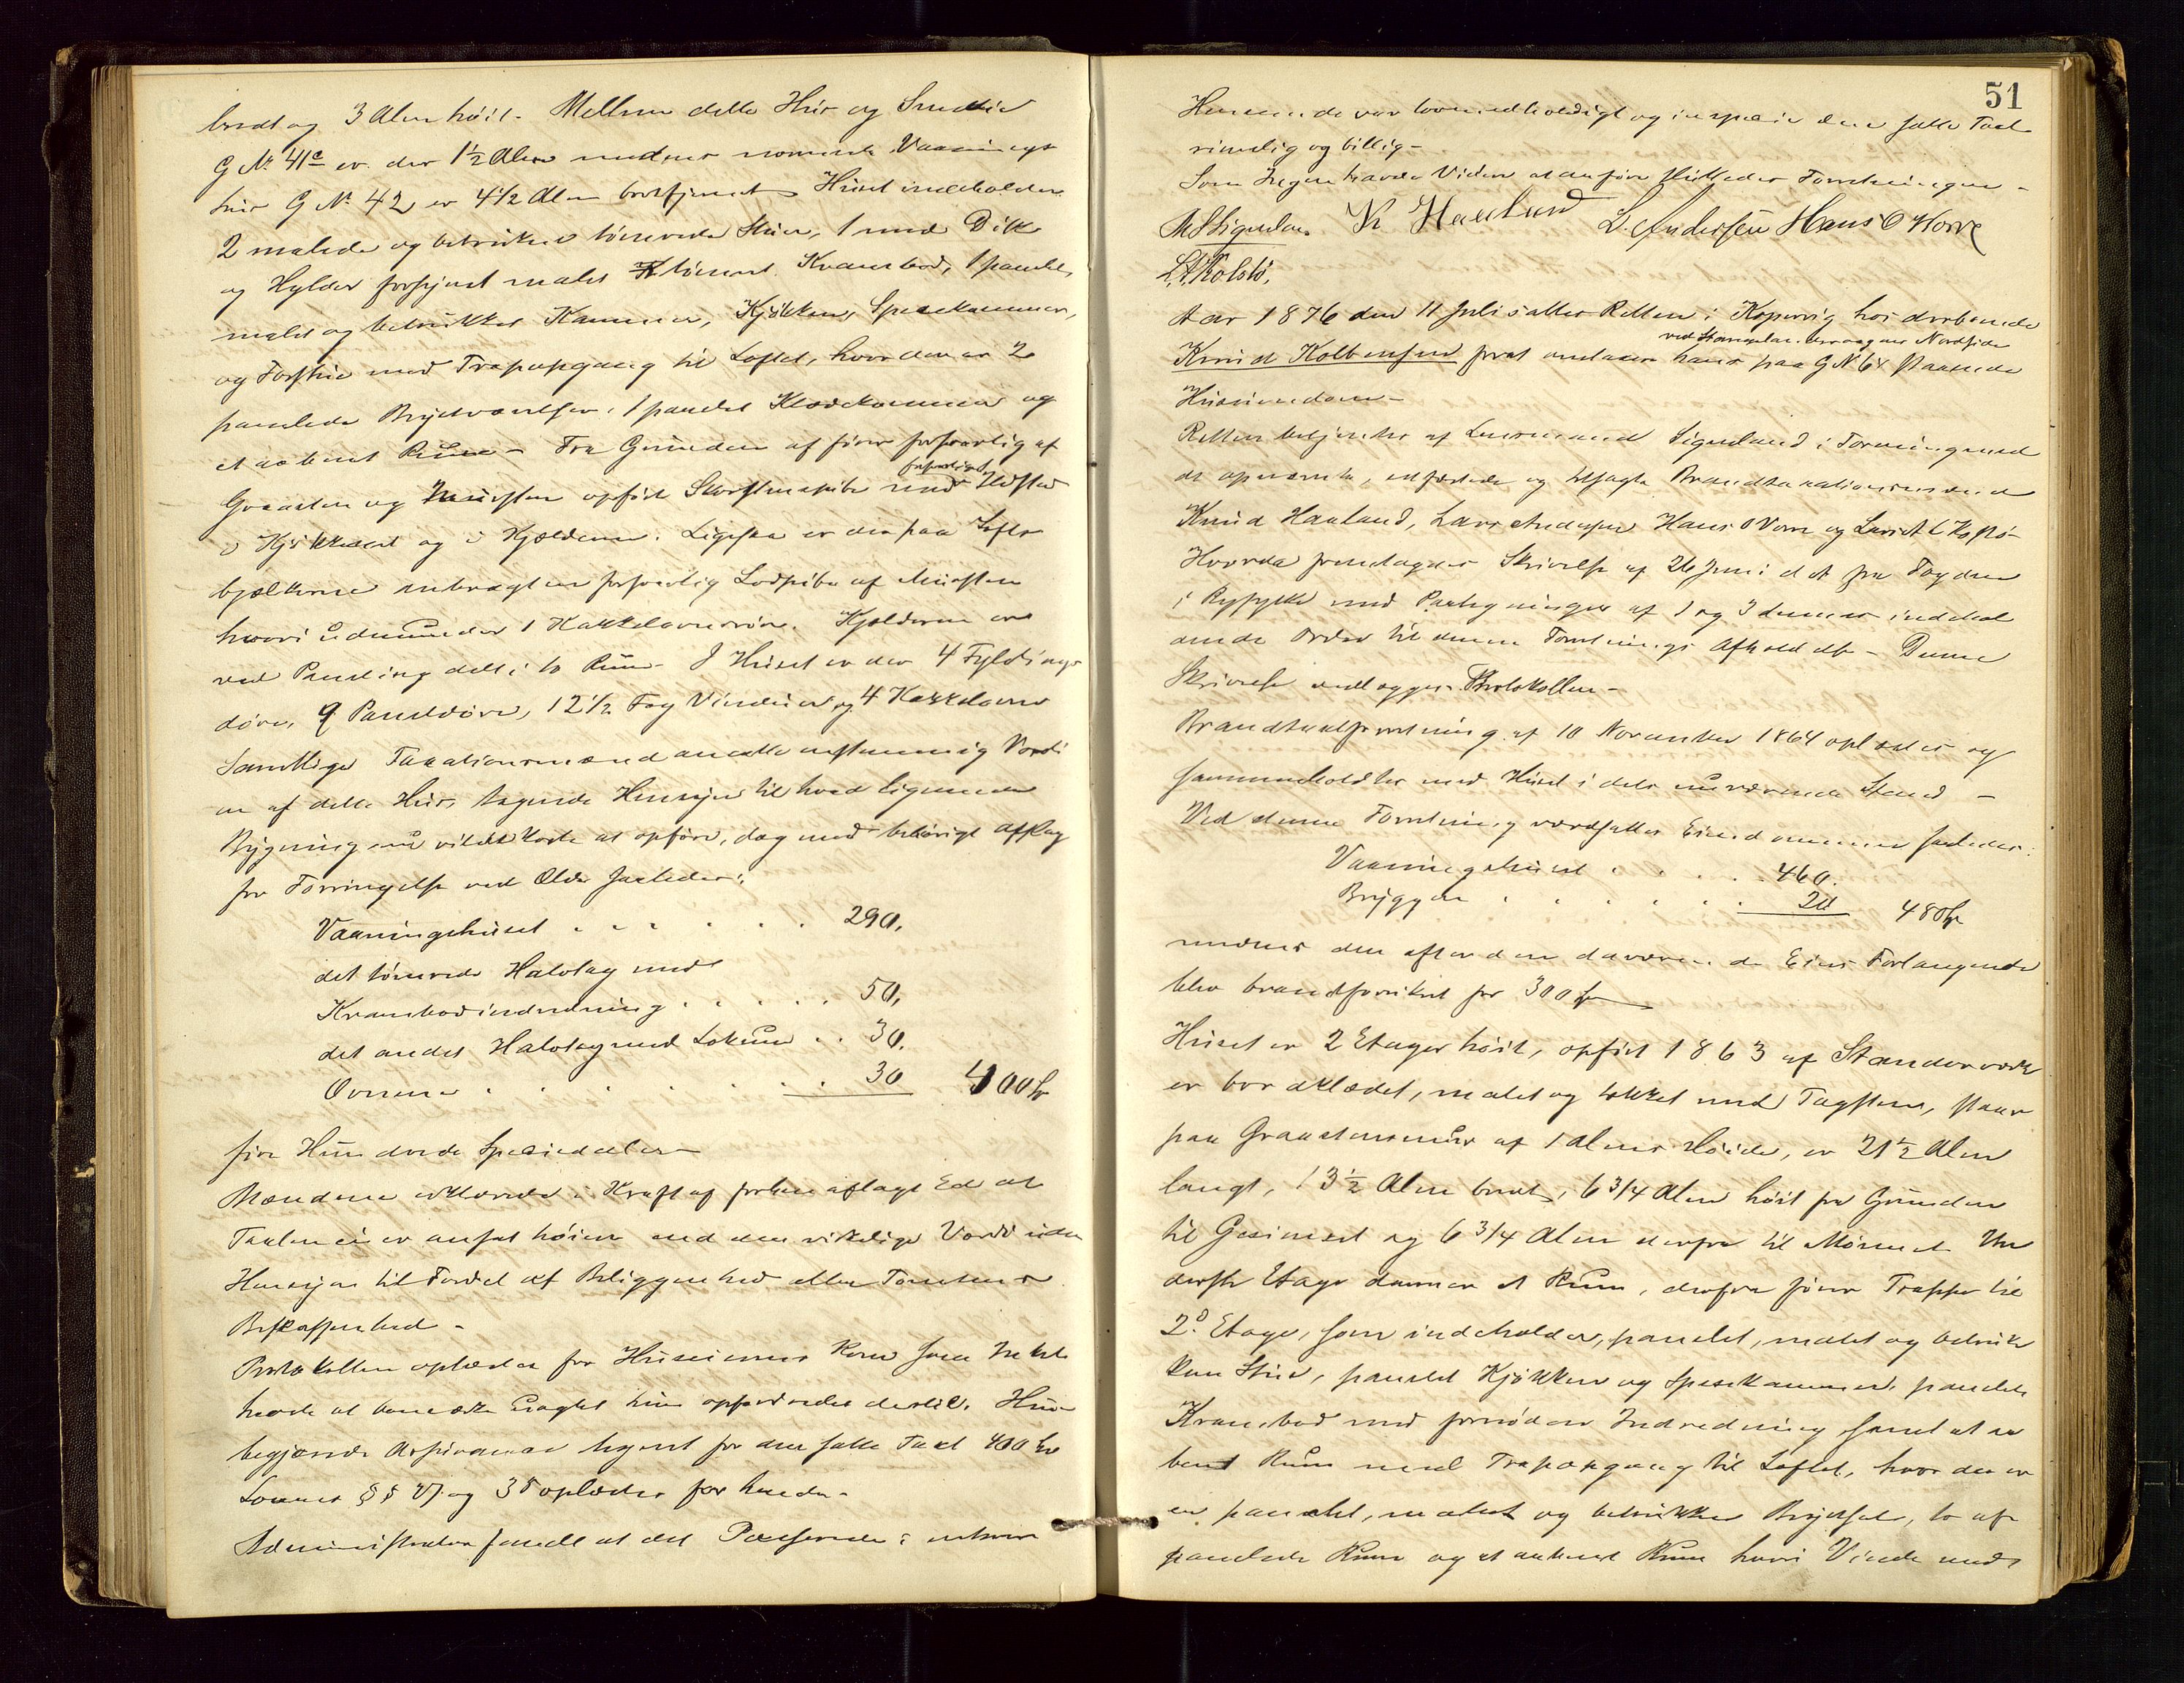 bredt og 3 Alen høit. Mellem dette Huus og Smedie
G No 41c er der 1 1/2 Alen medens nærmeste Vaanings
huus G No 42 er 4 1/2 Alen bortfjernet. Huset indeholder
2 malede og betrukne tømrede Stuer, 1 med Disk
og Hylder forsynet malet tømret Krambod, 1 panelet,
malet og betrukket Kammer, Kjøkken, Spisekammer,
og Forstue med Trapopgang til Loftet, hvor der er 2
panelede Brystværelser, 1 panelet Klædekammer og
et aabent Rum – Fra Grunden af fører forsvarlig af
Graasten og Muursten opført Skorstenspibe med forsvarligt Ildsted
i Kjøkkenet og i Kjælderen. Ligesaa er der paa Lofts
bjælkerne anbragt en forsvarlig Lodpibe af Muursten
hvori udmunder 1 Kakkelovnsrør. Kjælderen er
ved Paneling delt i to Rum – I Huset er der 4 Fyldings
døre, 9 Paneldøre, 12 1/2 Fag Vinduer og 4 Kakkelovne
Samtlige Taxationsmænd ansatte enstemmig Værdi
en af dette Huus, tagende Hensyn til hvad lignende
Bygning nu vilde koste at opføre, dog med behørigt Afslag
for Forringelse ved Ælde saaledes:
Vaaningshuset . . . . . . 290.
det tømrede Halvtag med
Krambodindredning . . . . . 50.
det andet Halvtag med Lokum . . 30.
Ovnene . . . . . . . 30 400 Sp
fire Hundrede Speciedaler
Mændene erklærede i Kraft af forhen aflagt Ed at
Taxten ei er ansat høiere end den virkelige Værdi uden
Hensyn til Fordel af Beliggenhed eller Tomtens
Beskaffenhed –
Protokollen oplæstes for Huseierens Kone som Intet
havde at bemærke uagtet hun opfordredes dertil. Hun
begjærede Assurancen tegnet for den satte Taxt 400 Sp
Lovens § § 27 og 35 oplæstes for hende –
Administrator fandt at det Passerede i enhver
51
Henseende var lovmedholdigt og in specie den satte Taxt
rimelig og billig –
Som Ingen havde Videre at anføre sluttedes Forretningen –
M S Siqveland K Haaland L. Andersen Hans O Vorre
L. A. Kolstø.
Aar 1876 den 11 Juli sattes Retten i Kopervig hos derboende
Knud Kolbensen for at omtaxere hans paa G No 64 ved Nordside staaende
Huseiendom –
Retten betjentes af Lensmand Siqveland i Forening med
de opnævnte, edfæstede og tilsagte Brandtaxationsmænd
Knud Haaland, Lars Andersen Hans O Vorre og Lars A Kolstø –
Hvorda fremlagdes Skrivelse af 26 Juni d A fra Fogden
i Ryfylke med Paategninger af 1 og 3 dennes indehol
dende Ordre til denne Forretnings Afholdelse – Denne
Skrivelse vedlægges Protokollen –
Brandtaxtforretning af 10 November 1864 oplæstes og
sammenholdtes med Huset i dets nuværende Stand –
Ved denne Forretning værdsattes Eiendommen saaledes:
Vaaningshuset . . . . . 460.
Bryggen . . . . . . 20 480 Sp
medens den efter den daværende Eiers Forlangende
blev brandforsikret for 300 Sp
Huset er 2 Etager høit, opført 1863 af Standerværk
er bordklædet, malet og tækket med Tagsten, staar
paa Graastensmuur af 1 Alens Høide, er 21 1/2 Alen
langt, 13 1/2 Alen bredt, 6 3/4 Alen høit fra Grunden
til Gesimset og 6 3/4 Alen derfra til Mønnet. Un
derste Etage danner et Rum, derfra fører Trappe til
2d. Etage, som indeholder, panelet, malet og betruk
ken Stue, panelet Kjøkken og Spisekammer, panelet
Krambod med fornøden Indredning samt et aa
bent Rum med Trapopgang til Loftet, hvor der er
en panelet, malet og betrukken Brystsal, to af
panelede Rum og et aabent Rum hvori Vinde med